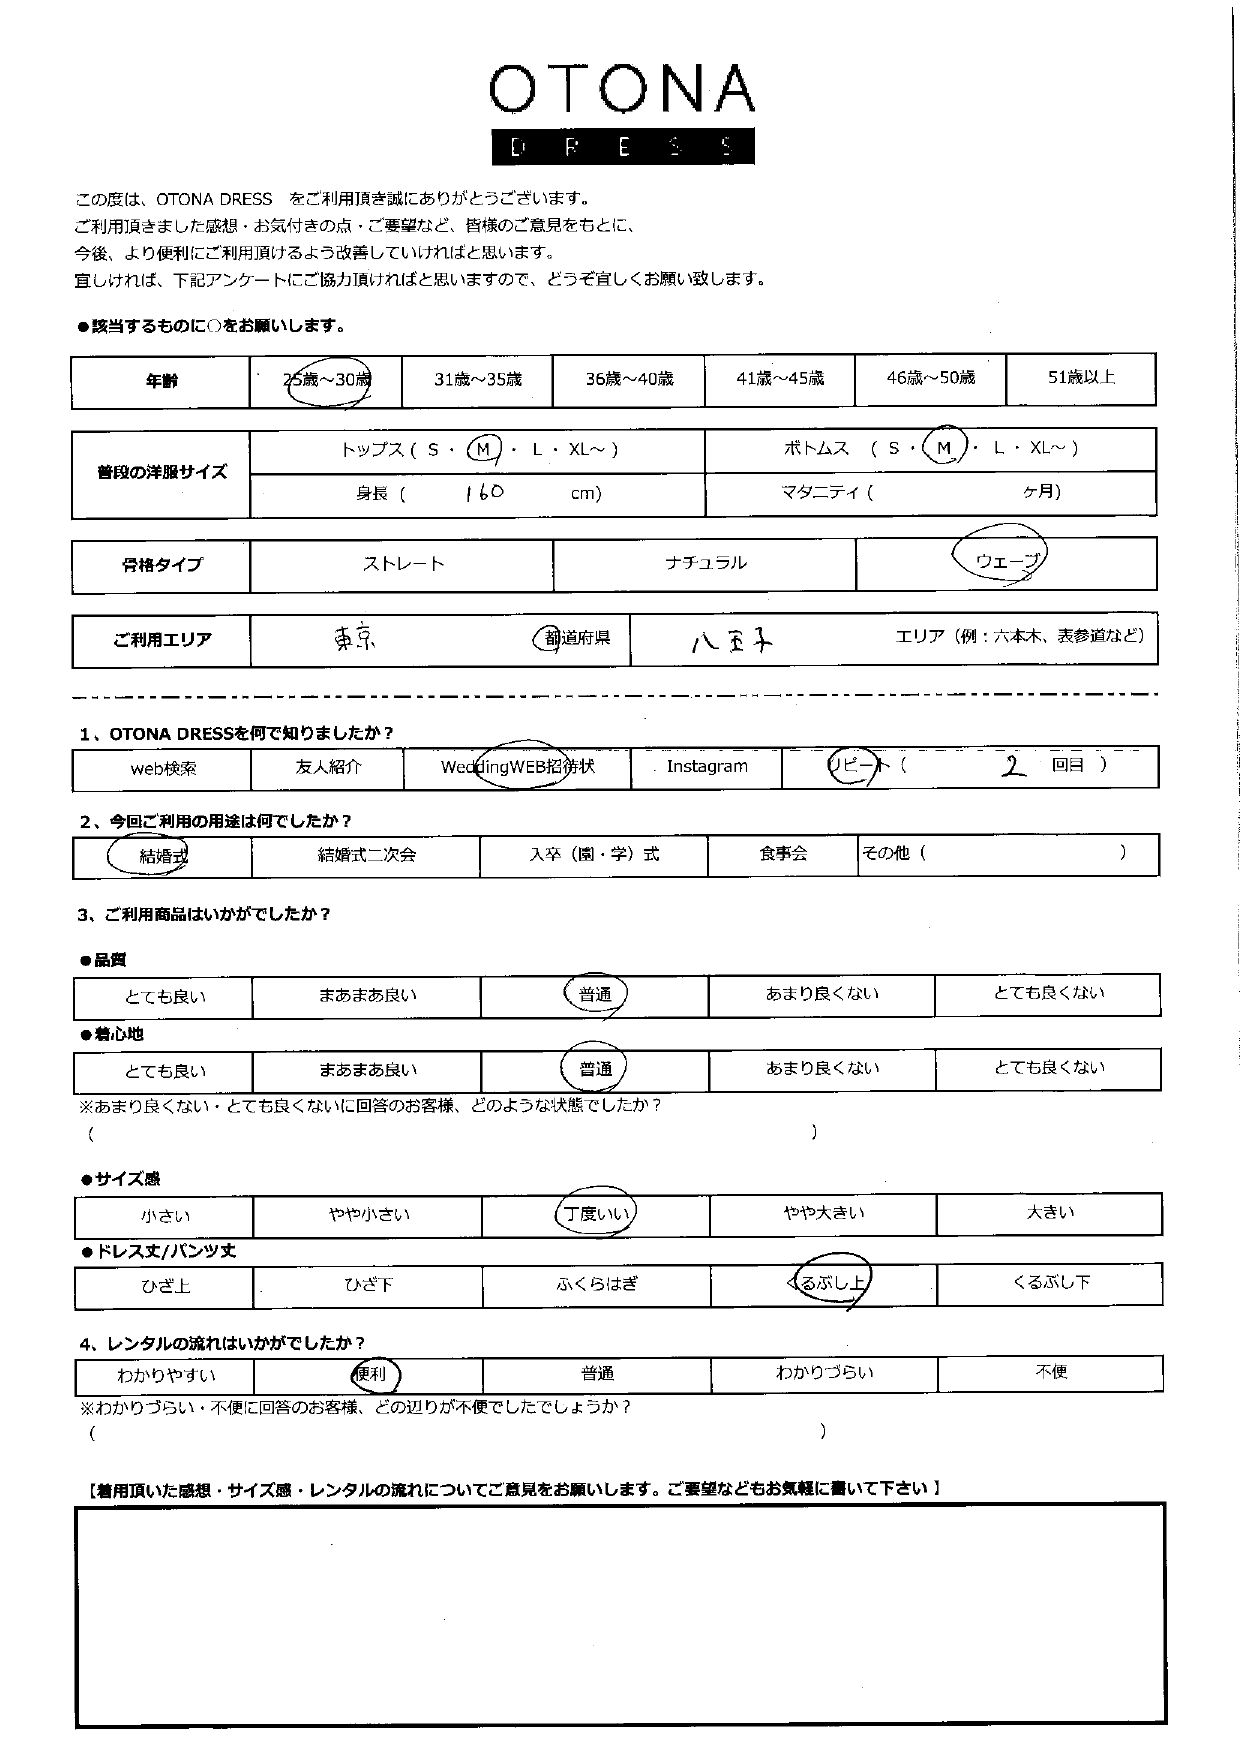 OTONA
DRESS
この度は、OTONA DRESS をご利用頂き誠にありがとうございます。
ご利用頂きました感想・お気付きの点・ご要望など、皆様のご意見をもとに、
今後、より便利にご利用頂けるよう改善していければと思います。
宜しければ、下記アンケートにご協力頂ければと思いますので、どうぞ宜しくお願い致します。
●該当するものに○をお願いします。
年齢 25歳～30歳 31歳～35歳 36歳～40歳 41歳～45歳 46歳～50歳 51歳以上
普段の洋服サイズ
トップス ( S ・ M ・ L ・ XL～ ) ボトムス ( S ・ M ・ L ・ XL～ )
身長 ( 160 cm) マタニティ ( ヶ月)
骨格タイプ ストレート ナチュラル ウェーブ
ご利用エリア 東京 都道府県 八王子 エリア（例：六本木、表参道など）
1、OTONA DRESSを何で知りましたか？
web検索 友人紹介 WeddingWEB招待状 Instagram リピート ( 2 回目 )
2、今回ご利用の用途は何でしたか？
結婚式 結婚式二次会 入卒（園・学）式 食事会 その他 ( )
3、ご利用商品はいかがでしたか？
●品質
とても良い まあまあ良い 普通 あまり良くない とても良くない
●着心地
とても良い まあまあ良い 普通 あまり良くない とても良くない
※あまり良くない・とても良くないに回答のお客様、どのような状態でしたか？
( )
●サイズ感
小さい やや小さい 丁度いい やや大きい 大きい
●ドレス丈/パンツ丈
ひざ上 ひざ下 ふくらはぎ くるぶし上 くるぶし下
4、レンタルの流れはいかがでしたか？
わかりやすい 便利 普通 わかりづらい 不便
※わかりづらい・不便に回答のお客様、どの辺りが不便でしたでしょうか？
( )
【着用頂いた感想・サイズ感・レンタルの流れについてご意見をお願いします。ご要望などもお気軽に書いて下さい 】